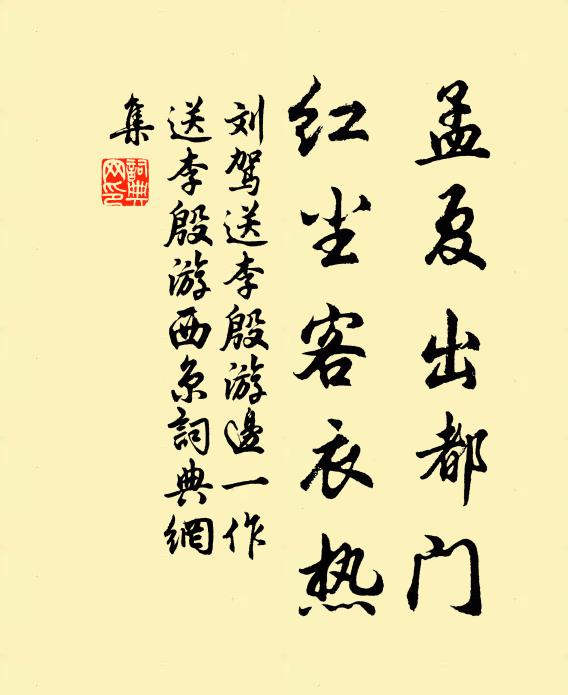 孟夏出都门
红尘客衣热
刘驾送李殷游邊一作
送李殷游西京詞典網
集
詞典網印